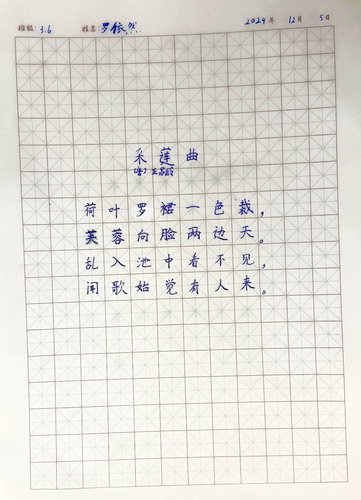 班级:3.6 姓名:罗依然 2024年 12月 5日
采莲曲
唐 王昌龄
荷叶罗裙一色裁,
芙蓉向脸两边天。
乱入池中看不见,
闻歌始觉有人来。